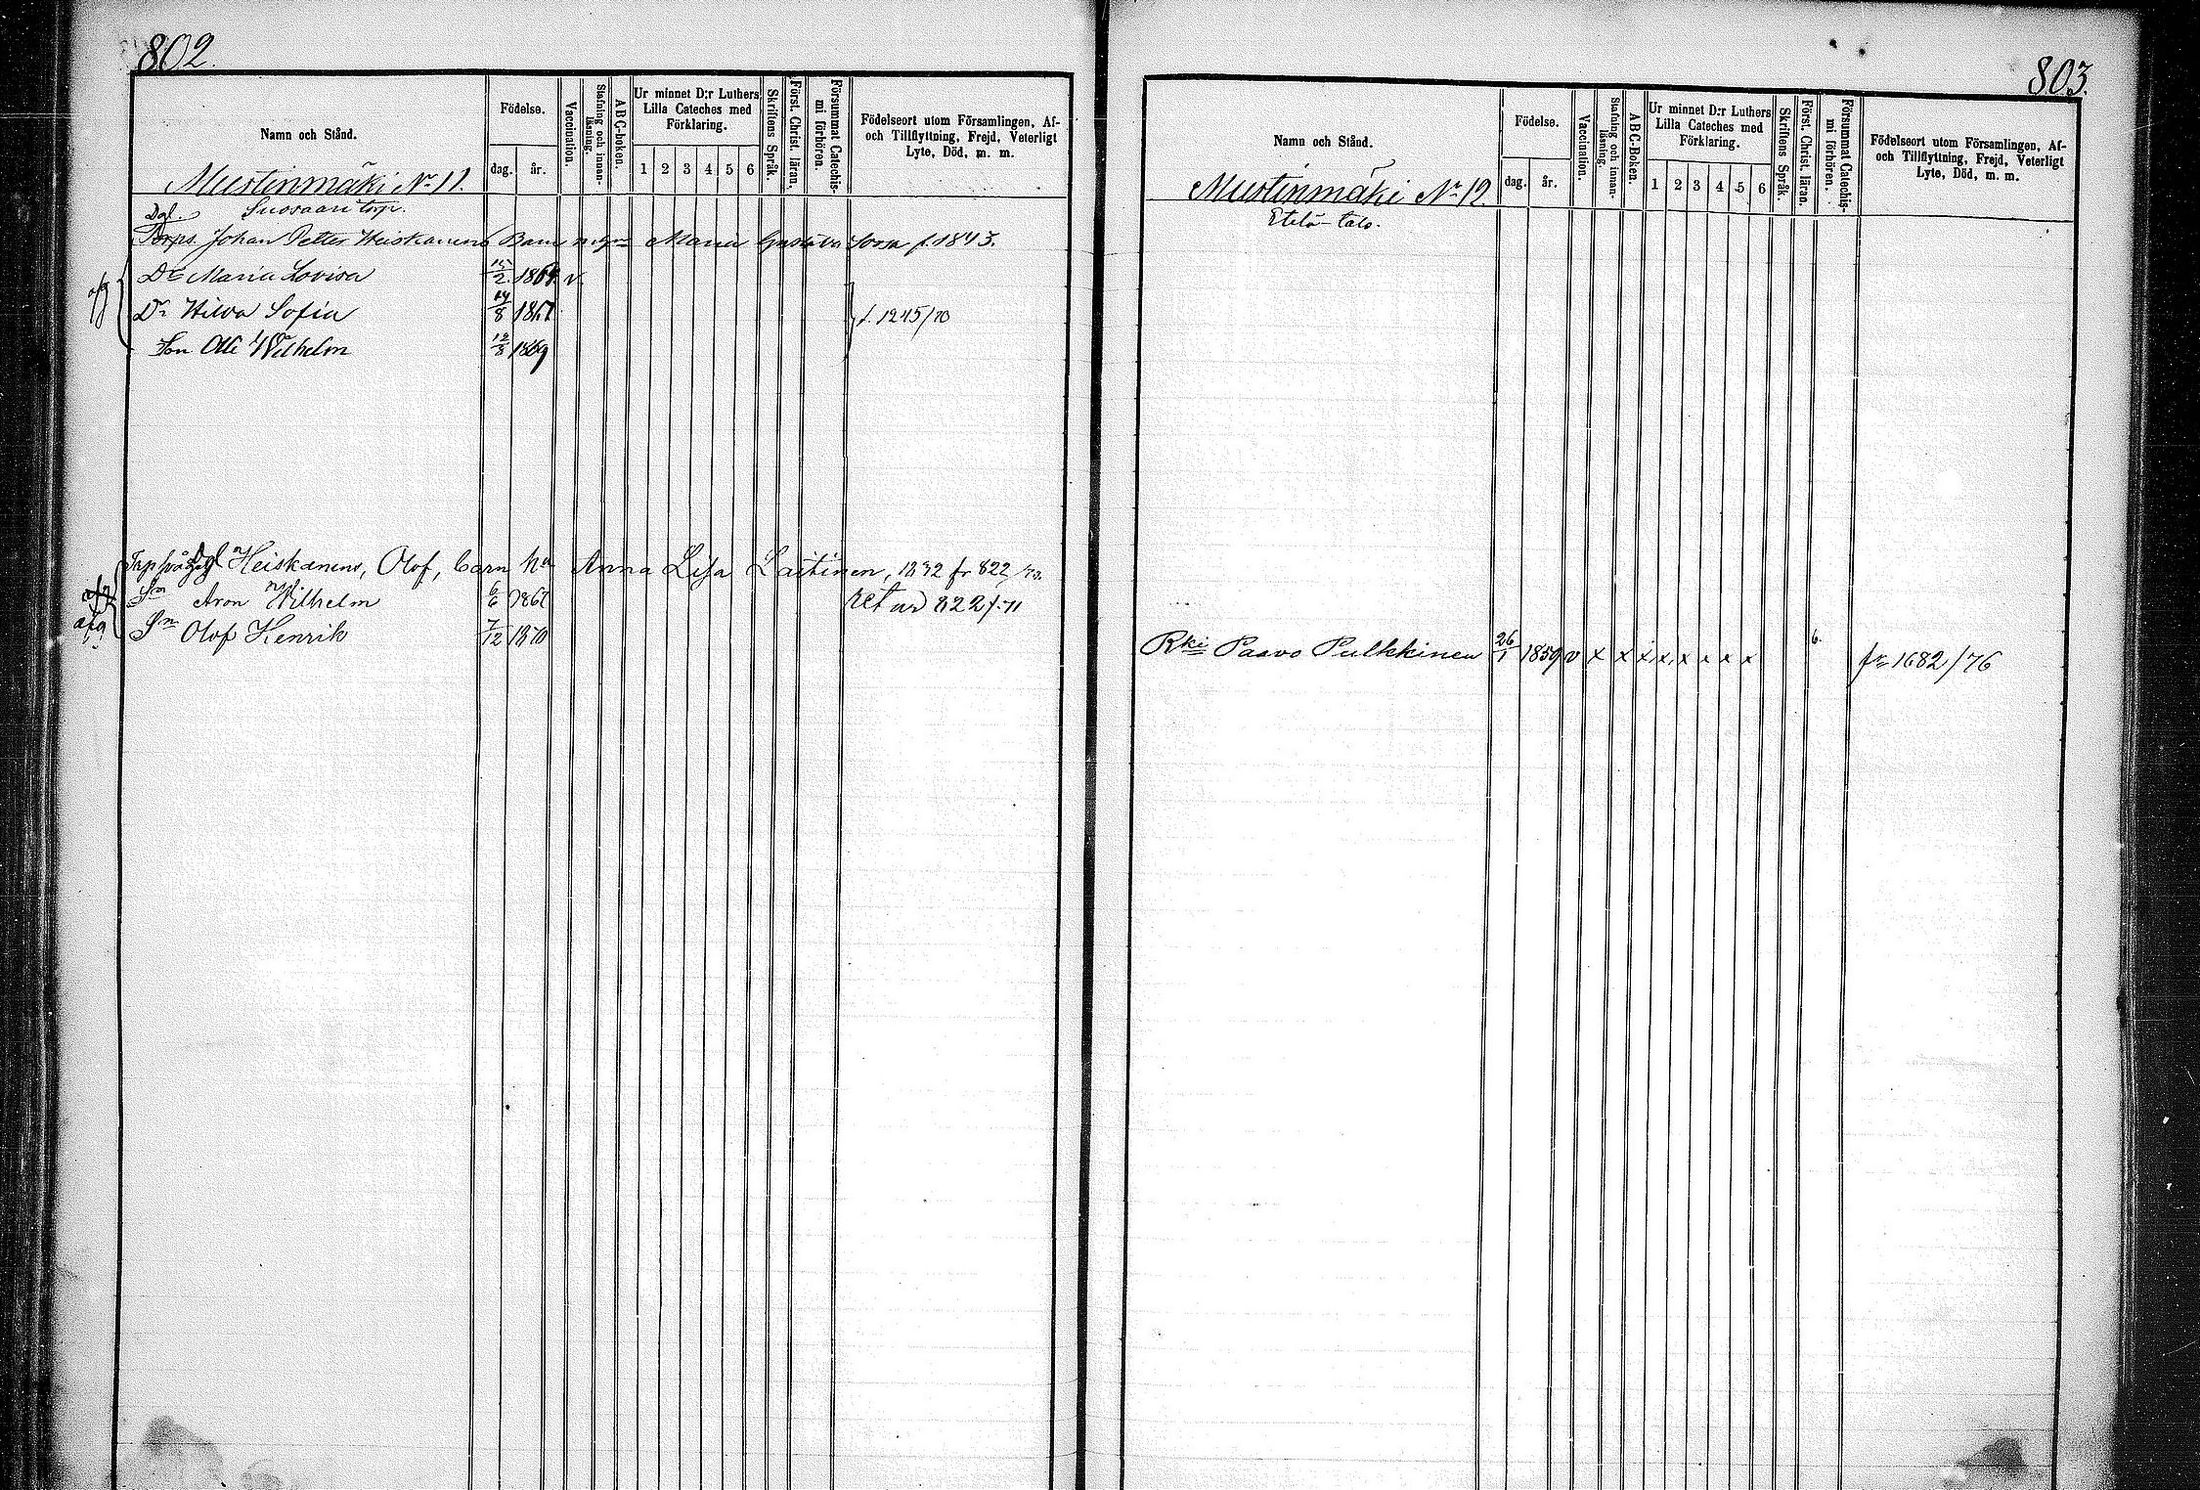 802.
Namn och Stånd.
Födelse.
dag.
år.
Vaccination.
Stafning och innan-
läsning.
ABC-boken.
Ur minnet D:r Luthers
Lilla Cateches med
Förklaring.
1 2 3 4 5 6
Skriftens Språk
Först. Christ. läran.
Försummat Catechis-
mi förhören.
Födelseort utom Församlingen, Af-
och Tillflyttning, Frejd, Veterligt
Lyte, Död, m. m.
Mustinmäki No 11.
Dgl. Suosaari torp.
Torps. Johan Petter Heiskanens Barn m. Maria Gustava f. 1843.
Dr Maria Lovisa 15/2 1864 v.
Dr Hilva Sofia 14/8 1867 f. 1245/70
Son Otto Wilhelm 12/8 1869
Heiskanens, Olof, barn Anna Lisa Laitinen, 1832 fr 822/70.
Sn Aron Wilhelm 6/6 1867 ret ur 822 f. 71
Sn Olof Henrik 7/12 1870
803.
Namn och Stånd.
Födelse.
dag.
år.
Vaccination.
Stafning och innan-
läsning.
ABC-Boken.
Ur minnet D:r Luthers
Lilla Cateches med
Förklaring.
1 2 3 4 5 6
Skriftens Språk.
Först. Christ. läran.
Försummat Catechis-
mi förhören.
Födelseort utom Församlingen, Af-
och Tillflyttning, Frejd, Veterligt
Lyte, Död, m. m.
Mustinmäki No 12.
Etelä-talo.
Rki Paavo Pulkkinen 26/1 1859 v x x x x x x x x 6. fr 1682/76